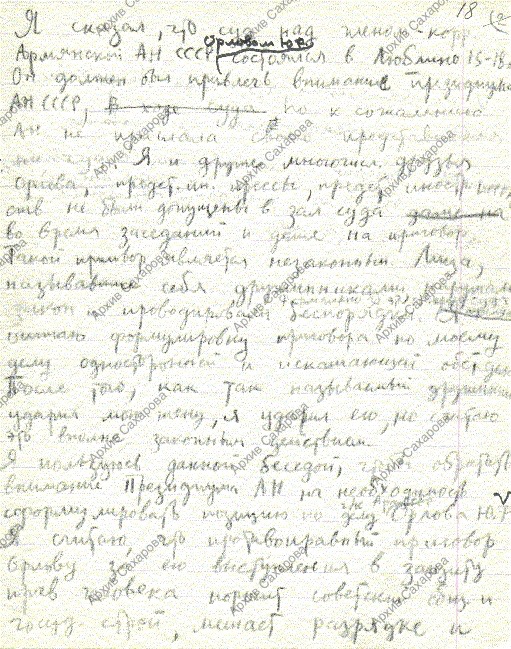 18
Я сказал, что суд над член. корр.
Армянской АН СССР Орловым Ю.Ф. состоялся в Люблино 15-18
Он должен был привлечь внимание президиума
АН СССР, В ходе суда но к сожалению
АН не прислала своего представителя
Я и другие многочисл. друзья
Орлова, предст. ин. прессы, предст. иностр.
ств не были допущены в зал суда даже на
во время заседаний и даже на приговор
Такой приговор является незаконным. Лица,
называвшие себя дружинниками
закон и провоцировали беспорядки. Я
считаю формулировку приговора по моему
делу односторонней и искажающей обст. дела
После того, как так называемый дружинник
ударил мою жену, я ударил его, но считаю
это вполне законным действием.
Я пользуюсь данной беседой, чтобы обратить
внимание Президиума АН на необходимость
сформулировать позицию по делу Орлова Ю.Ф.
Я считаю, что противоправный приговор
Орлову за его выступления в защиту
прав человека порочит советский общ. и
госуд. строй, мешает разрядке и
Архив Сахарова